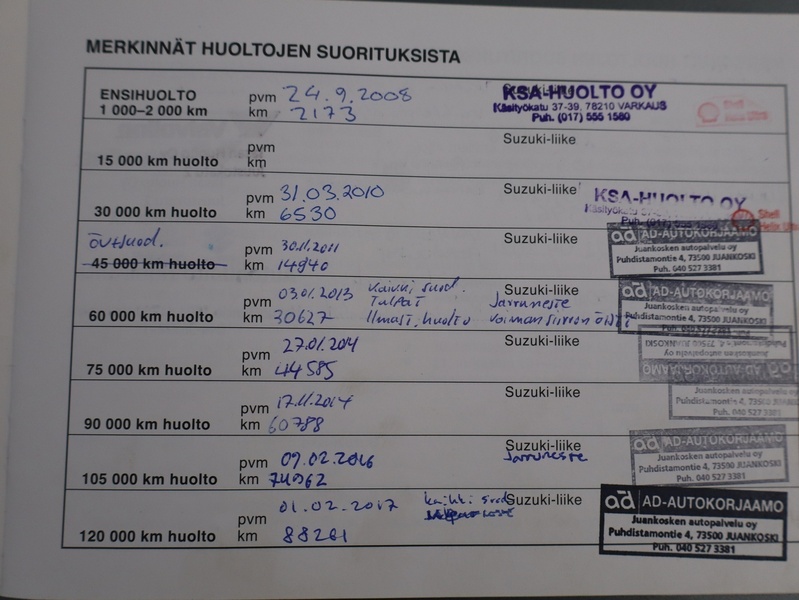 MERKINNÄT HUOLTOJEN SUORITUKSISTA
ENSIHUOLTO pvm 24.9.2008 Suzuki-liike KSA-HUOLTO OY
1 000–2 000 km km 2173 Käsityökatu 37-39, 78210 VARKAUS Shell
Puh. (017) 555 1580
pvm Suzuki-liike
15 000 km huolto km
pvm 31.03.2010 Suzuki-liike KSA-HUOLTO OY
30 000 km huolto km 6530 Shell
Puh.
öv+suod. 30.11.2011 AD-AUTOKORJAAMO
45 000 km huolto km 14940 Juankosken autopalvelu oy
Puhdistamontie 4, 73500 JUANKOSKI
Puh. 040 527 3381
pvm 03.01.2013 Kaikki suod. Suzuki-liike ad AD-AUTOKORJAAMO
Tulpat Jarruneste Juankosken autopalvelu oy
60 000 km huolto km 30627 Ilmast. huolto Puhdistamontie 4, 73500 JUANKOSKI
Puh. 040 527 3381
pvm 27.01.2014 Suzuki-liike Puhdistamontie 4, 73500 JUANKOSKI
Juankosken autopalvelu oy
75 000 km huolto km 44585 ad AD-AUTOKORJAAMO
pvm 17.11.2014 Suzuki-liike Juankosken autopalvelu oy
90 000 km huolto km 60788 Puhdistamontie 4, 73500
Puh. 040 527 3381
pvm 09.02.2016 Suzuki-liike ad AD-AUTOKORJAAMO
Jarruneste Juankosken autopalvelu oy
105 000 km huolto km 74962 Puhdistamontie 4, 73500 JUANKOSKI
Puh. 040 527 3381
pvm 01.02.2017 kaikki suod. Suzuki-liike ad AD-AUTOKORJAAMO
120 000 km huolto km 88261 Juankosken autopalvelu oy
Puhdistamontie 4, 73500 JUANKOSKI
Puh. 040 527 3381